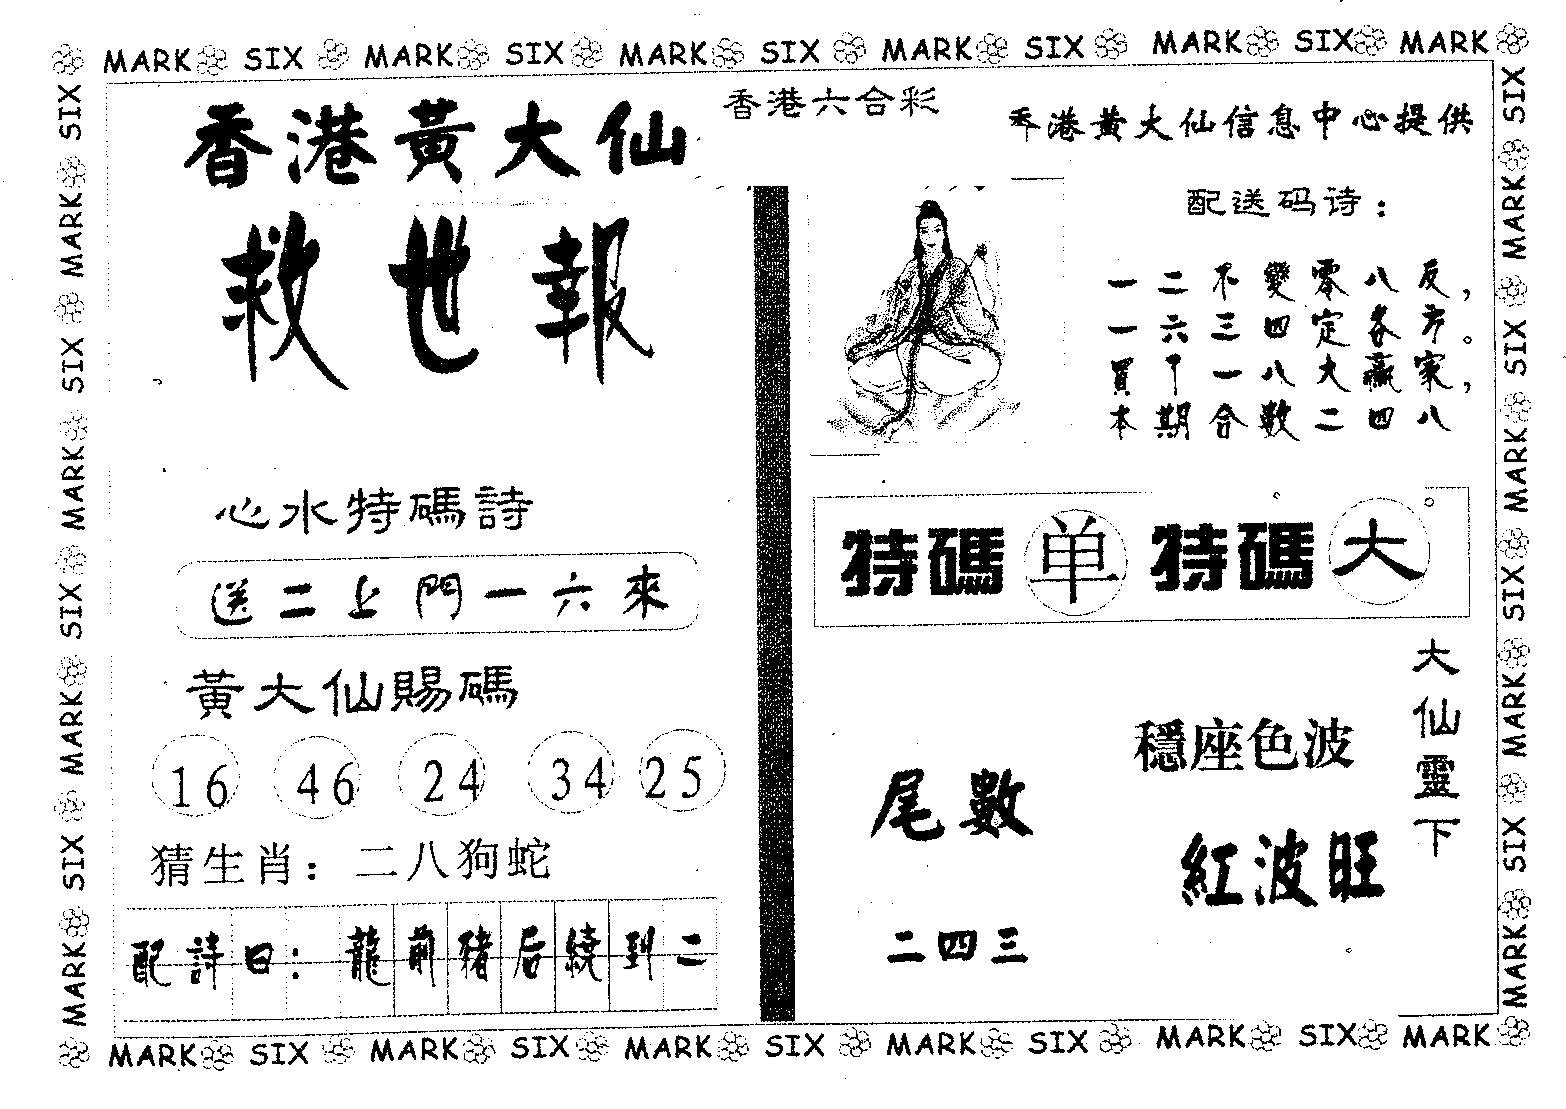 MARK SIX MARK SIX MARK SIX MARK SIX MARK SIX MARK
香港黃大仙
救世報
心水特碼詩
送二上門一六來
黃大仙賜碼
16 46 24 34 25
猜生肖：二八狗蛇
配詩曰：龍前豬后繞到二
香港六合彩
香港黃大仙信息中心提供
配送码诗：
一二不變零八反，
一六三四定各方。
買下一八大贏家，
本期合数二四八
特碼 单 特碼 大
大仙靈下
穩座色波
紅波旺
尾數
二四三
SIX MARK SIX MARK SIX MARK SIX MARK
SIX MARK SIX MARK SIX MARK SIX MARK
MARK SIX MARK SIX MARK SIX MARK SIX MARK SIX MARK